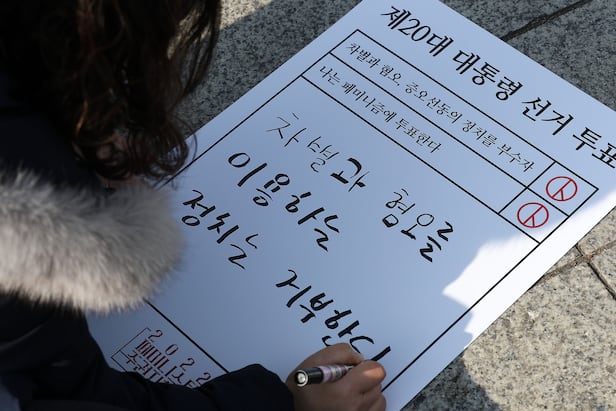 제20대 대통령 선거 투표
차별과 혐오, 증오선동의 정치를 부수자
나는 페미니즘에 투표한다
차별과 혐오를
이용하는
정치는 거부한다
2022
페미니스트